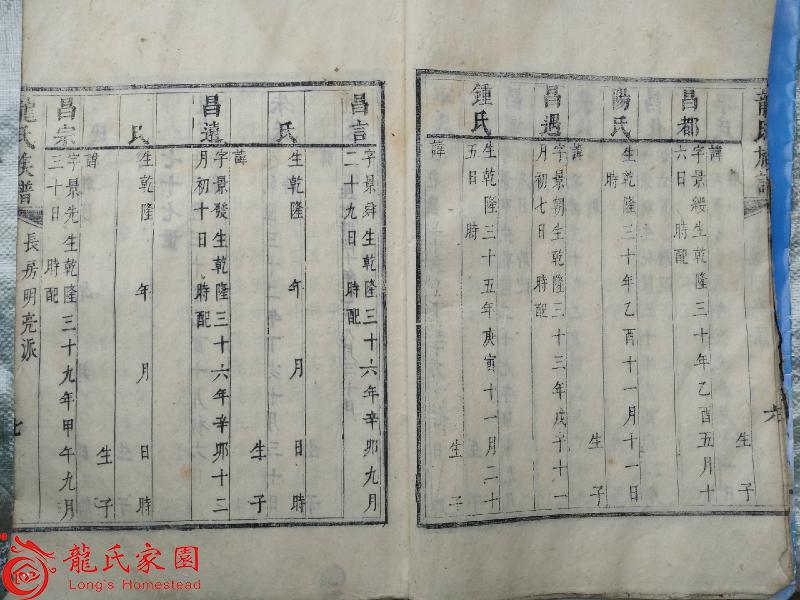 龍氏族譜
六
昌都
字景綬生乾隆三十年乙酉五月十
六日 時配
諱 生子
陽氏
生乾隆三十年乙酉十一月十一日
時
昌遇
諱 生子
字景朝生乾隆三十三年戊子十一
月初七日 時配
鍾氏
生乾隆三十五年庚寅十一月二十
五日 時
諱 生子
昌言
字景 生乾隆三十六年辛卯九月
二十九日 時配
氏
生乾隆 年 月 日時
昌遠
諱 生子
字景發生乾隆三十六年辛卯十二
月初十日 時配
氏
生乾隆 年 月 日時
昌宗
諱 生子
字景先生乾隆三十九年甲午九月
三十日 時配
龍氏族譜
長房明亮派
七
龍氏家園
Long's Homestead